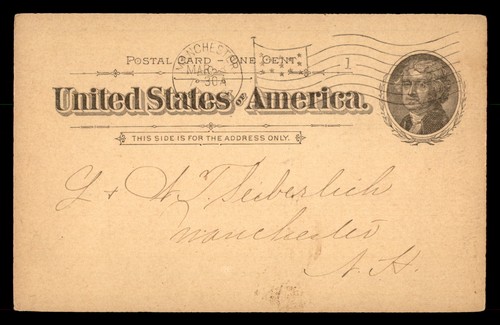 MANCHESTER
MAR
30A
1
POSTAL CARD - ONE CENT.
United States of America.
THIS SIDE IS FOR THE ADDRESS ONLY.
& W. F. Seiberlich
Manchester
N. H.